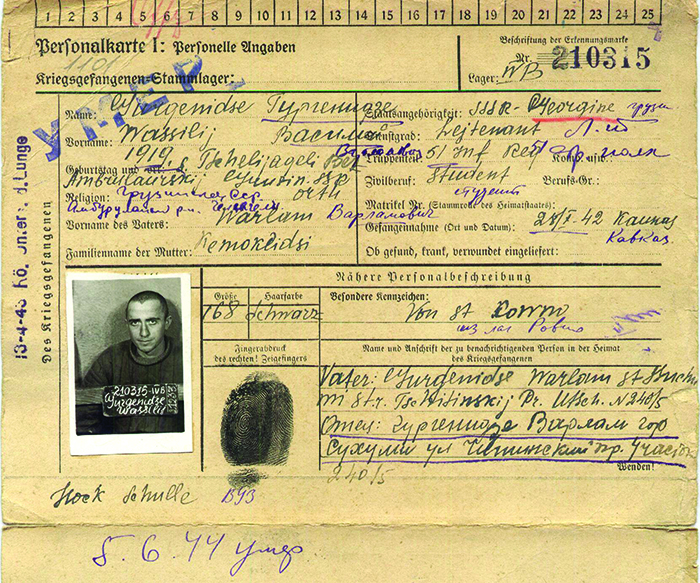 1 2 3 4 5 6 7 8 9 10 11 12 13 14 15 16 17 18 19 20 21 22 23 24 25
Personalkarte I: Personelle Angaben
Kriegsgefangenen-Stammlager:
Beschriftung der Erkennungsmarke
Nr. 210315
Lager: IVB
УМЕР
Des Kriegsgefangenen
Name: Gurgenidse Гургенидзе
Vorname: Wassilij Василий
Geburtstag und -ort: 1919
Religion: Orth
Vorname des Vaters: Warlam Варламович
Familienname der Mutter: Kemoklidsi
Staatsangehörigkeit: SSSR - Georgine грузин
Dienstgrad: Lejtenant Л-т
Truppenteil: 51 Inf Reg Komp. usw.:
Zivilberuf: Student Berufs-Gr.:
студент
Matrikel Nr. (Stammrolle des Heimatstaates):
Gefangennahme (Ort und Datum): 42 Kaukas
Кавказ
Ob gefund, krank, verwundet eingeliefert:
13-4-43 Lunge
Nähere Personalbeschreibung
Größe Haarfarbe Besondere Kennzeichen:
168 Schwarz Von st Rowno
из лаг Ровно
Fingerabdruck
des rechten! Zeigefingers
Name und Anschrift der zu benachrichtigenden Person in der Heimat
des Kriegsgefangenen
210315-IVB
Gurgenidse
Wassilij
Vater: Gurgenidse Warlam st Such
mi Str. Pr. Utsch. N 240/5
Отец: Гургенидзе Варлам гор
Сухуми ул Читинский пр. Участок
240/5
Wenden!
Hock Schulle ВУЗ
5.6.44 умер